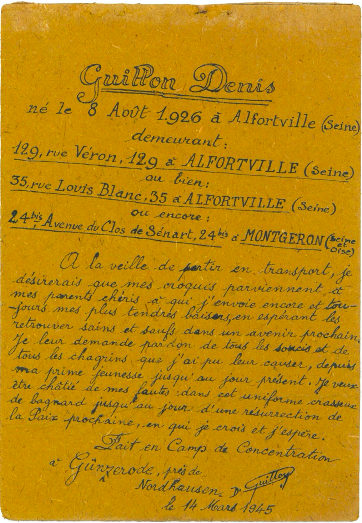 Guillon Denis
né le 8 Août 1926 à Alfortville (Seine)
demeurant:
129, rue Véron, 129 à ALFORTVILLE (Seine)
ou bien:
35, rue Louis Blanc, 35 à ALFORTVILLE (Seine)
ou encore:
24bis, Avenue du Clos de Sénart, 24bis à MONTGERON (Seine et Oise)
A la veille de partir en transport, je
désirerais que mes croquis parviennent et
mes parents chéris à qui j'envoie encore et tou-
jours mes plus tendres baisers, en espérant les
retrouver sains et saufs dans un avenir prochain.
Je leur demande pardon de tous les soucis et de
tous les chagrins que j'ai pu leur causer, depuis
ma prime jeunesse jusqu'au jour présent. Je veux
être châtié de mes fautes dans cet uniforme crasseux
de bagnard jusqu'au jour d'une résurrection de
la Paix prochaine, en qui je crois et j'espère.
Fait en Camp de Concentration
à Günzerode, près de
Nordhausen. D. Guillon
le 14 Mars 1945